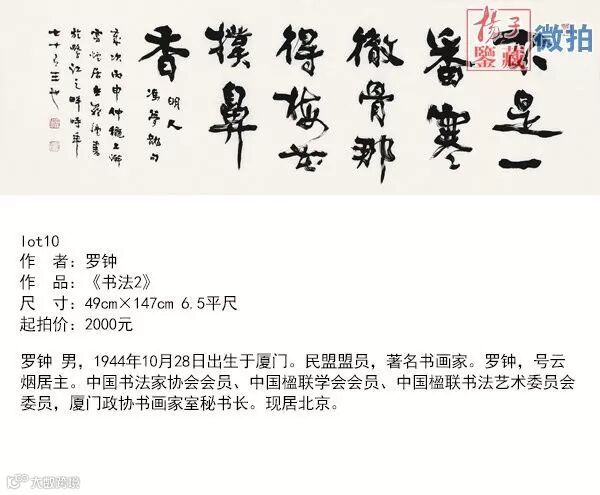 楊子
鑒藏
微拍
不是一
番寒
徹骨那
得梅花
撲鼻
香
明人
馮夢龍句
歲次丙申仲龝上澣
於鷺江之畔時年
lot10
作 者：罗钟
作 品：《书法2》
尺 寸：49cm×147cm 6.5平尺
起拍价：2000元
罗钟 男，1944年10月28日出生于厦门。民盟盟员，著名书画家。罗钟，号云
烟居主。中国书法家协会会员、中国楹联学会会员、中国楹联书法艺术委员会
委员，厦门政协书画家室秘书长。现居北京。
大数跨境